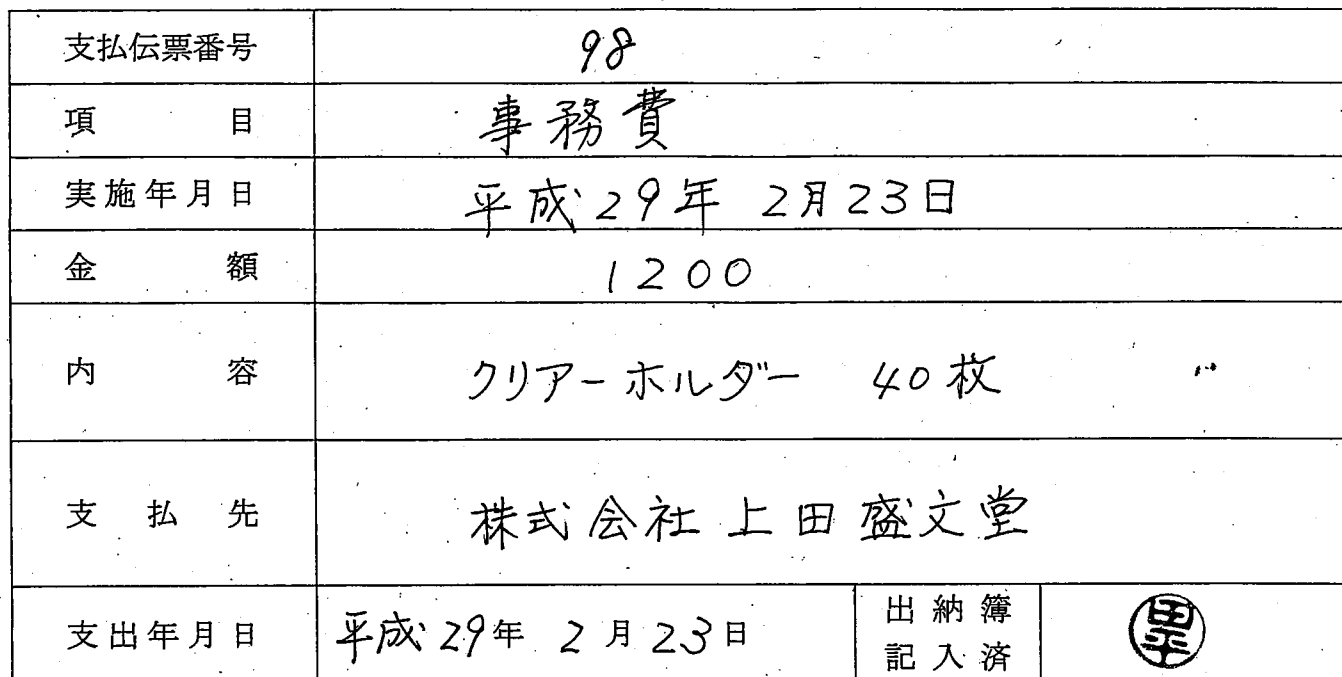 支払伝票番号 98
項目 事務費
実施年月日 平成29年 2月23日
金額 1200
内容 クリアーホルダー 40枚
支払先 株式会社上田盛文堂
支出年月日 平成29年 2月23日 出納簿
記入済